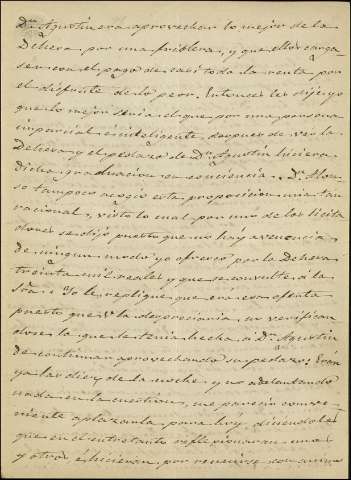 Dn. Agustin era aprovechar lo mejor de la
Dehera por una friolera, y que ellos carga-
sen con el pago de casi toda la renta por
el disfrute de lo peor. Entonces les dije yo
que lo mejor seria el que por una persona
imparcial é inteligente, despues de ver la
Dehera y el pedazo de Dn. Agustin hiciera
dicha graduacion en conciencia. Dn. Alon-
so tampoco acogió esta proposicion mia tan
racional, y visto lo cual por uno de los licita-
dores se dijo puesto que no hay avenencia
de ningun modo yo ofrezco por la Dehera
treinta mil reales y que se consulte á la
Sra. Yo le repliqué que era esa oferta
puesto que V. la depreciaria, no verifican-
dose la que le tenia hecha á Dn. Agustin
de continuar aprovechando su pedazo. Eran
ya las diez de la noche y no adelantando
nada en la cuestion, me pareció conve-
niente aplazarla para hoy, diciendoles
que en el entretanto reflexionaran unos
y otros é hicieran por reunirse con animo